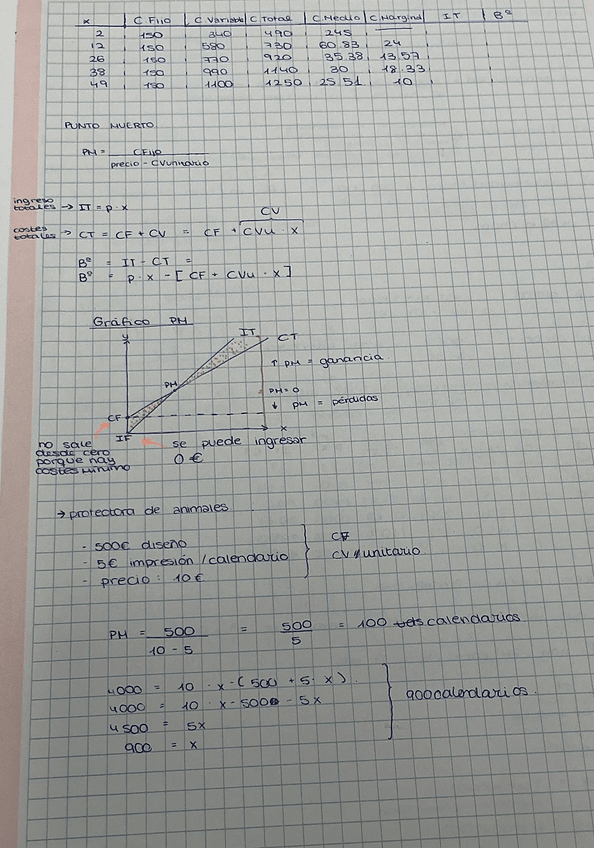 x | C Fijo | C Variable | C Total | C Medio | C Marginal | IT | Bº
2 | 150 | 340 | 490 | 245 | —
12 | 150 | 580 | 730 | 60.83 | 24
26 | 150 | 770 | 920 | 35.38 | 13.57
38 | 150 | 990 | 1140 | 30 | 18.33
49 | 150 | 1100 | 1250 | 25.51 | 10
PUNTO MUERTO
PM = CFijo / precio - CVunitario
ingreso totales → IT = p · x
CV
costes totales → CT = CF + CV = CF + CVu · x
Bº = IT - CT =
Bº = p · x - [CF + CVu · x]
Gráfico PM
y IT CT
↑ PM = ganancia
PM
PM = 0
↓ PM = pérdidas
CF
IF x
no sale desde cero porque hay costes mínimo
se puede ingresar 0 €
→ protectora de animales
- 500€ diseño CF
- 5€ impresión / calendario CV unitario
- precio: 10€
PM = 500 / 10 - 5 = 500 / 5 = 100 calendarios
4000 = 10 · x - (500 + 5 · x)
4000 = 10 · x - 500 - 5x
4500 = 5x
900 = x
900 calendarios.